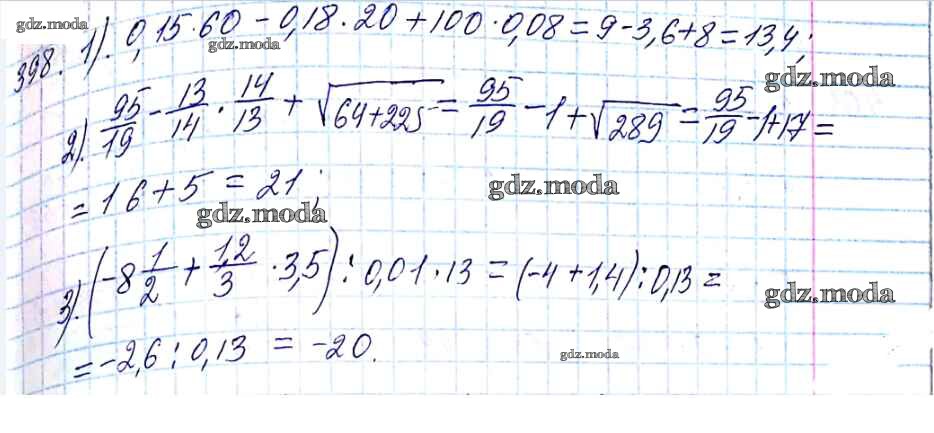 gdz.moda
398. 1). 0,15·60 - 0,18·20 + 100·0,08 = 9 - 3,6 + 8 = 13,4;
gdz.moda
gdz.moda
2). 95/19 - 13/14 · 14/13 + √(64+225) = 95/19 - 1 + √289 = 95/19 - 1 + 17 =
= 16 + 5 = 21;
gdz.moda
gdz.moda
3). (-8 1/2 + 1,2/3 · 3,5) : 0,01 · 13 = (-4 + 1,4) : 0,13 =
gdz.moda
gdz.moda
= -2,6 : 0,13 = -20.
gdz.moda